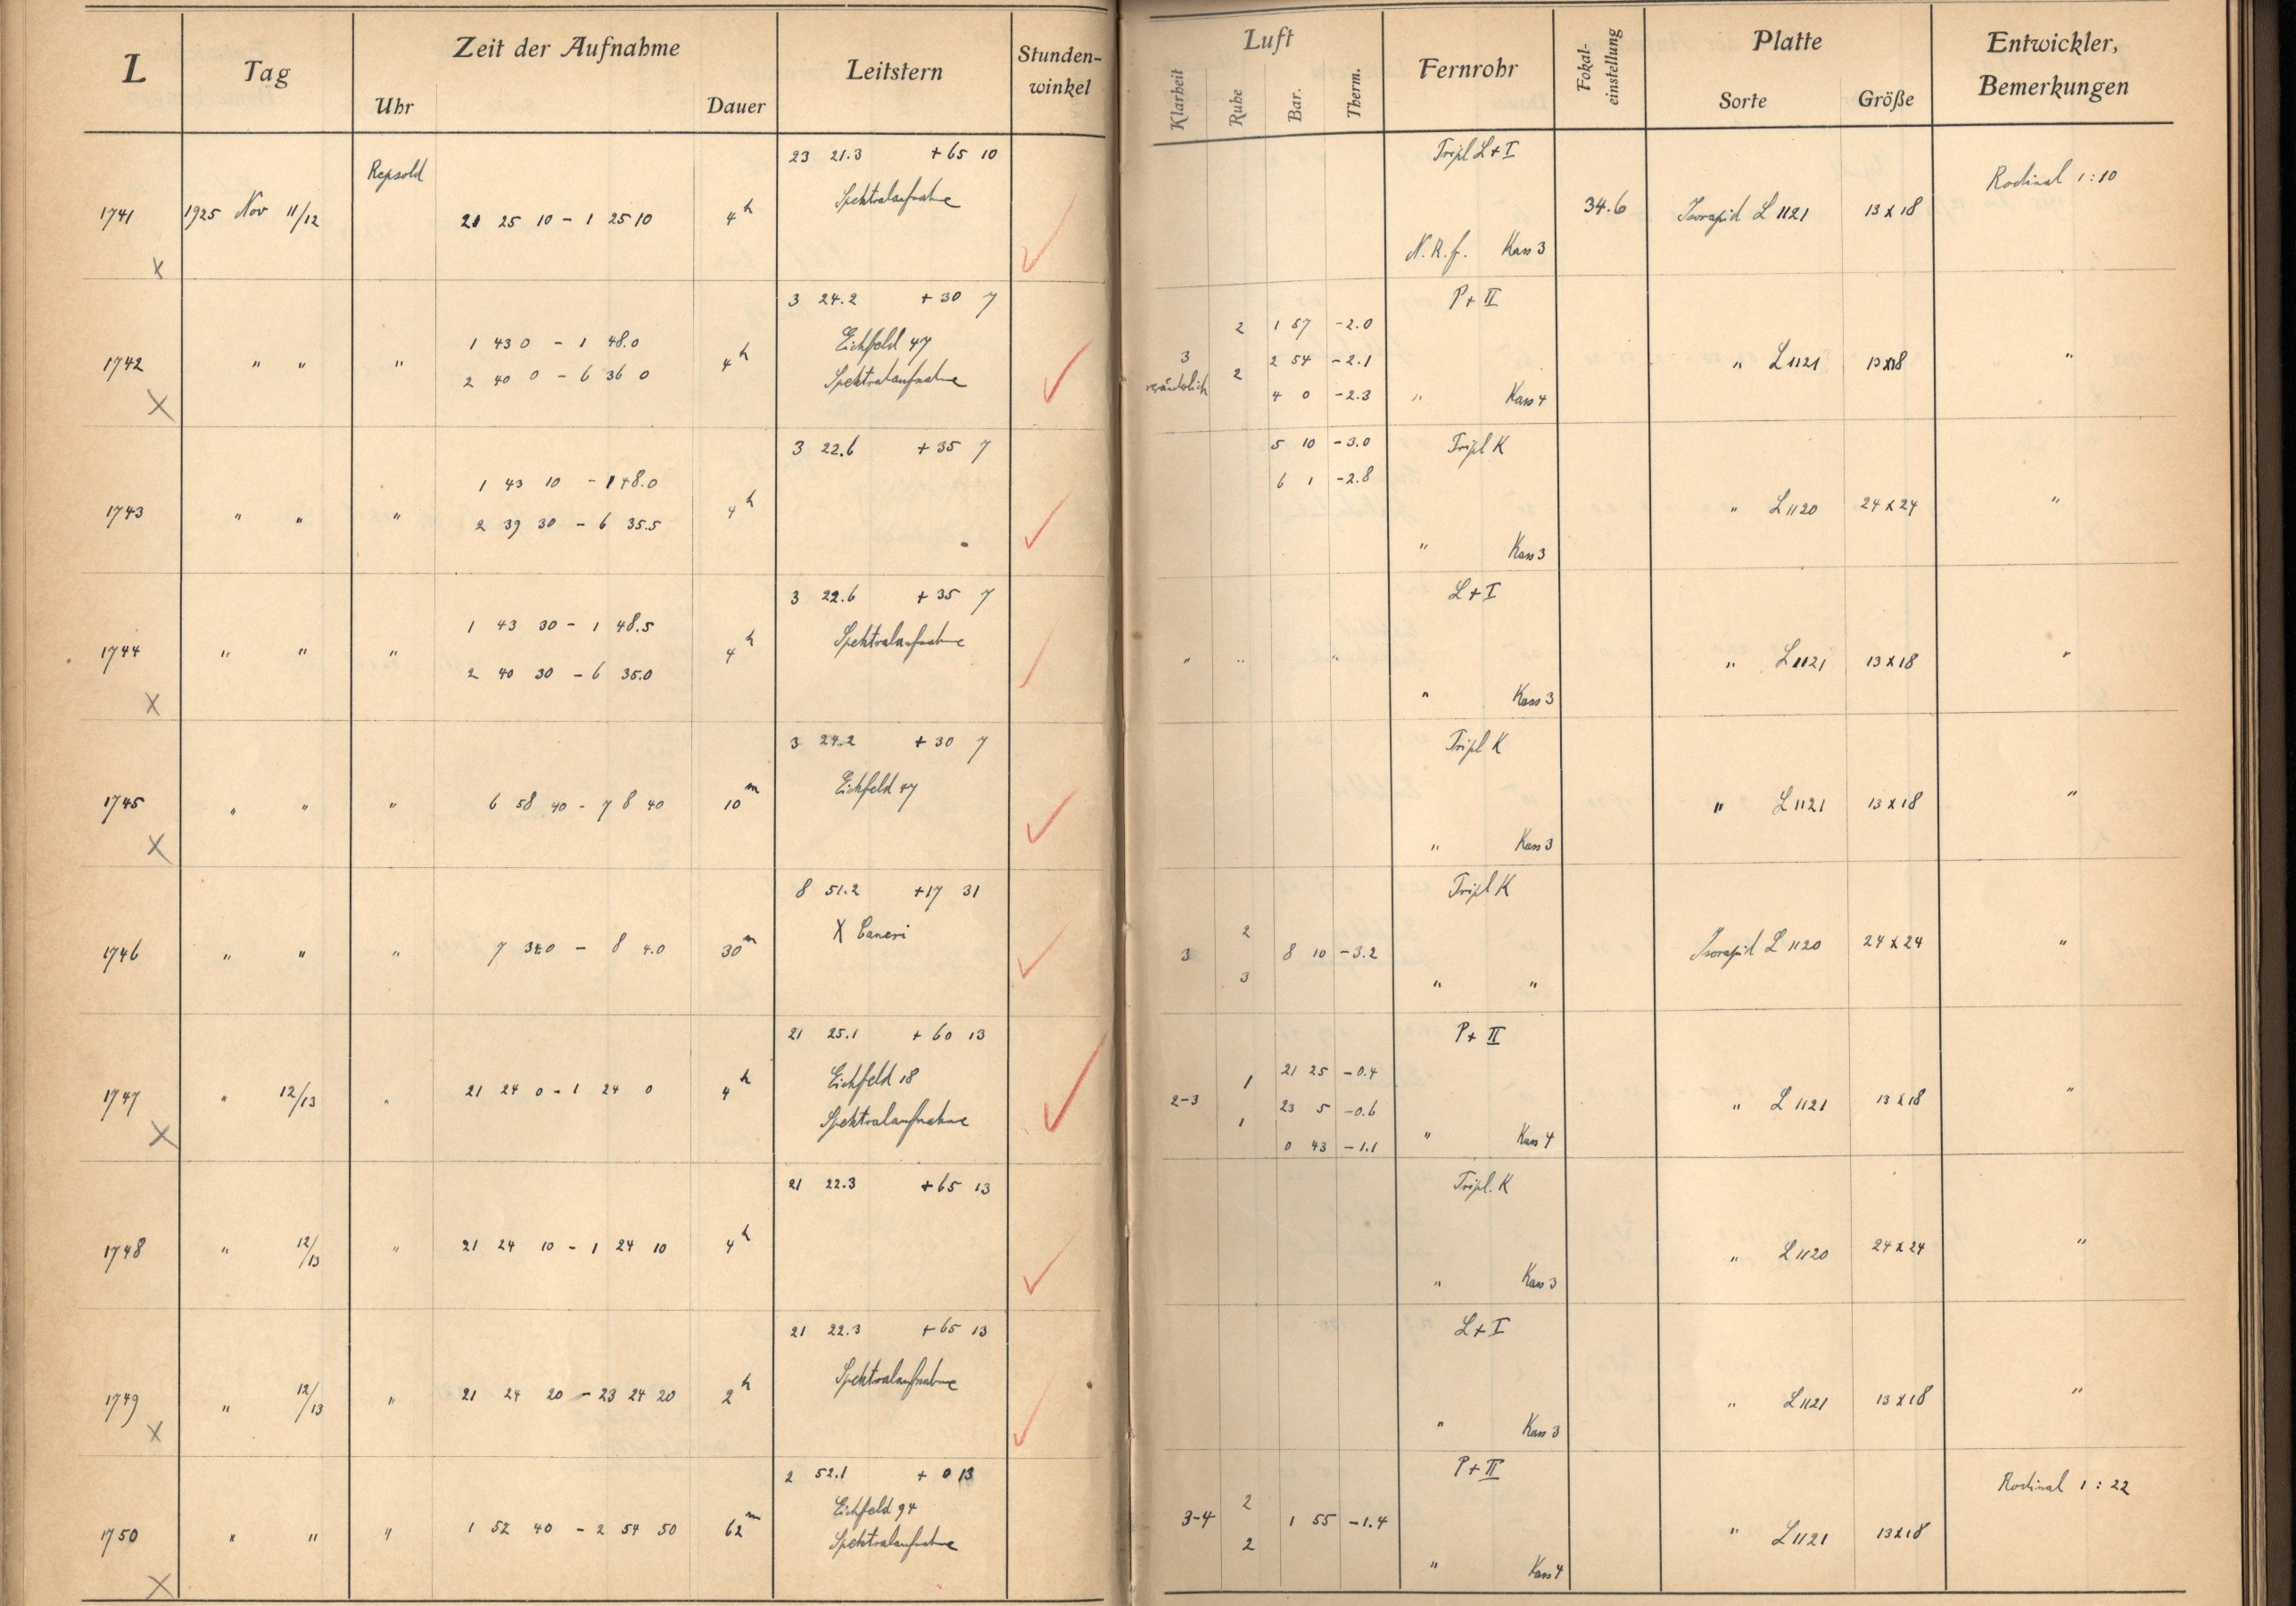 L Tag Zeit der Aufnahme Leitstern Stunden-winkel Luft Fernrohr Fokal-einstellung Platte Entwickler, Bemerkungen
Uhr Dauer Klarheit Ruhe Bar. Therm. Sorte Größe
23 21.3 +65 10 Tripl L+I
Repsold Spektralaufnahme Rodinal 1:10
1741 1925 Nov 11/12 21 25 10 - 1 25 10 4h 34.6 Isorapid L 1121 13x18
X N.R.f. Kass 3
3 24.2 +30 7 P+II
1 43 0 - 1 48.0 Eichfeld 47 2 1 57 -2.0
1742 " " " 4h 3 2 54 -2.1 " L 1121 13x18 "
2 40 0 - 6 36 0 Spektralaufnahme veränderlich 2
X 4 0 -2.3 " Kass 4
3 22.6 +35 7 5 10 -3.0 Tripl K
1 43 10 - 1 48.0 6 1 -2.8
1743 " " " 4h " L 1120 24x24 "
2 39 30 - 6 35.5
" Kass 3
3 22.6 +35 7 L+I
1 43 30 - 1 48.5 Spektralaufnahme
1744 " " " 4h " " " " L 1121 13x18 "
2 40 30 - 6 35.0
X " Kass 3
3 24.2 +30 7 Tripl K
Eichfeld 47
1745 " " " 6 58 40 - 7 8 40 10m " L 1121 13x18 "
X " Kass 3
8 51.2 +17 31 Tripl K
X Cancri 2
1746 " " " 7 34.0 - 8 4.0 30m 3 8 10 -3.2 Isorapid L 1120 24x24 "
3 " "
21 25.1 +60 13 P+II
Eichfeld 18 1 21 25 -0.4
1747 " 12/13 " 21 24 0 - 1 24 0 4h 2-3 23 5 -0.6 " L 1121 13x18 "
Spektralaufnahme 1
X 0 43 -1.1 " Kass 4
21 22.3 +65 13 Tripl. K
1748 " 12/13 " 21 24 10 - 1 24 10 4h " L 1120 24x24 "
" Kass 3
21 22.3 +65 13 L+I
Spektralaufnahme
1749 " 12/13 " 21 24 20 - 23 24 20 2h " L 1121 13x18 "
X " Kass 3
2 52.1 + 0 13 P+II
Eichfeld 94 2 Rodinal 1:22
1750 " " " 1 52 40 - 2 54 50 62m 3-4 1 55 -1.4 " L 1121 13x18
Spektralaufnahme 2
X " Kass 4